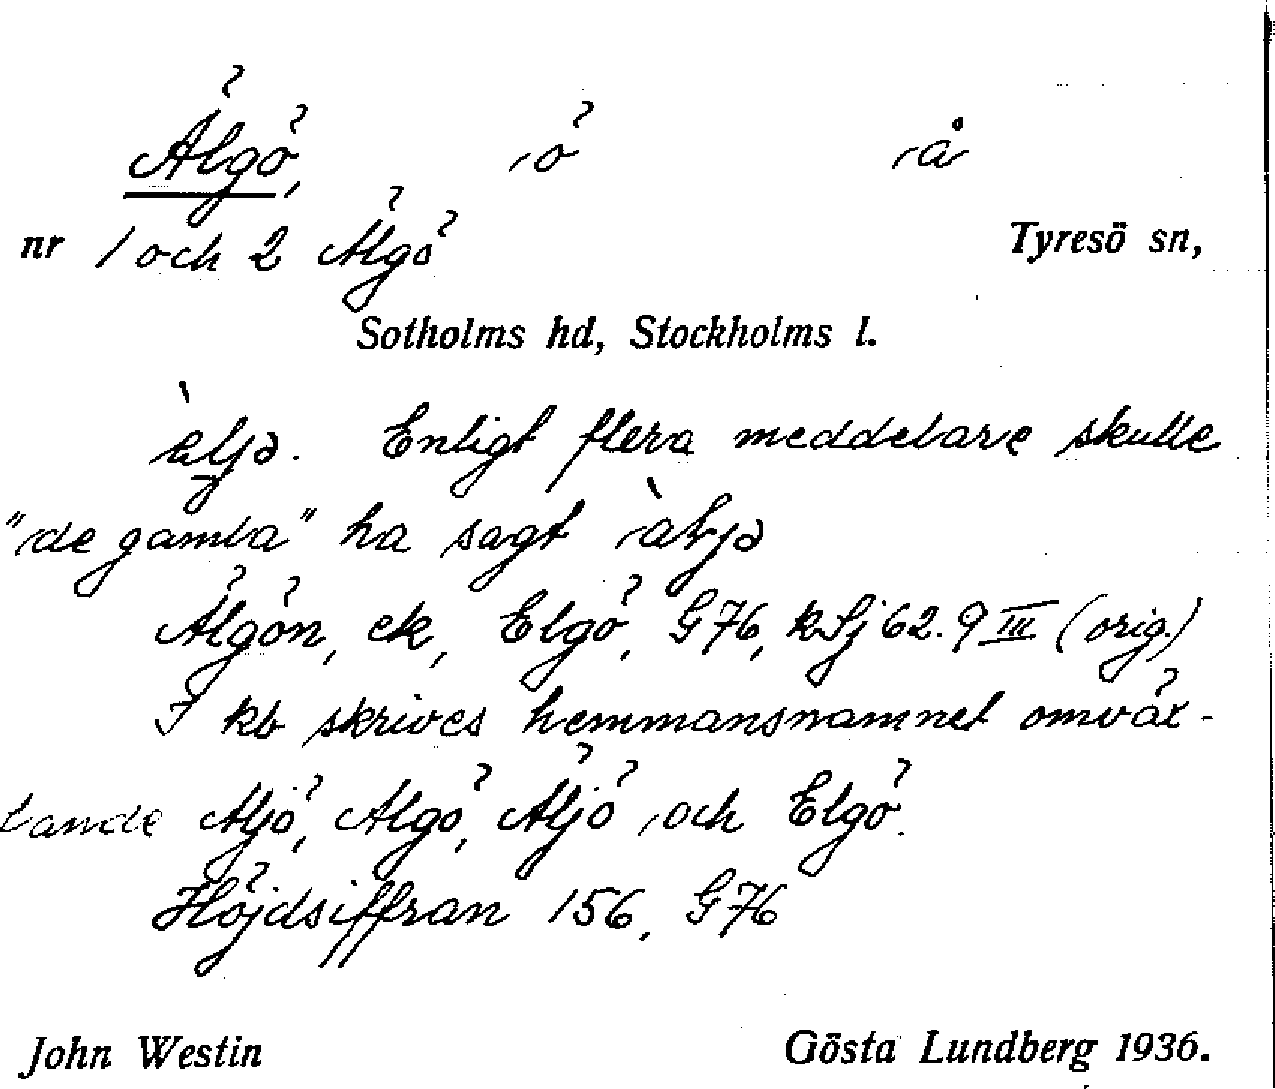 Älgö, ö å
nr 1 och 2 Älgö Tyresö sn,
Sotholms hd, Stockholms l.
Enligt flera meddelare skulle
"de gamla" ha sagt
Älgön, ek, Elgö, G76, kSj 62.9 III (orig.)
I kb skrives hemmansnamnet omväx-
lande Aljö, Algö, Äljö, och Elgö.
Höjdsiffran 156, G76
John Westin Gösta Lundberg 1936.